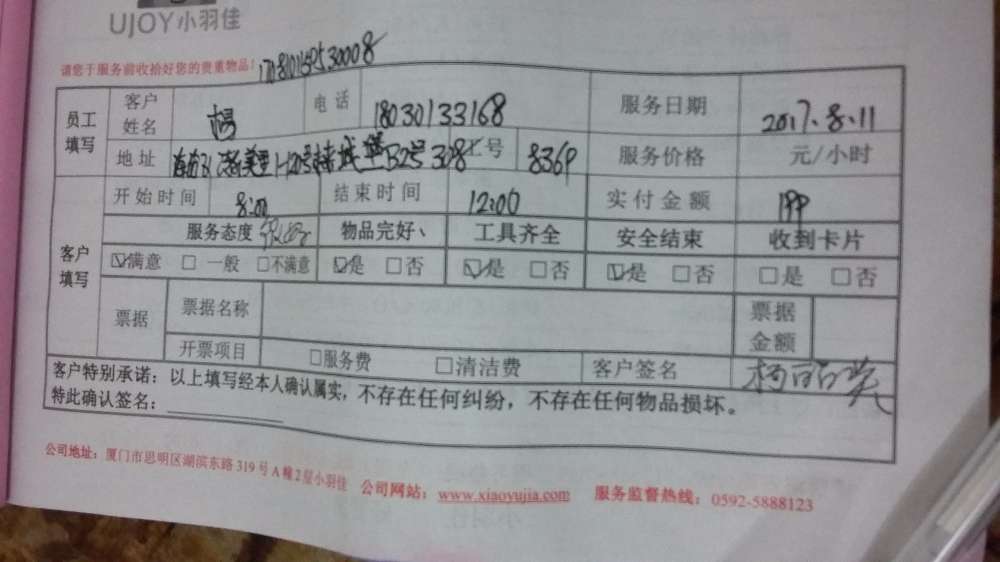 UJOY小羽佳
请您于服务前收拾好您的贵重物品!
员工填写 客户姓名 杨 电话 18030133168 服务日期 2017.8.11
地址 号 8369 服务价格 元/小时
客户填写 开始时间 8:00 结束时间 12:00 实付金额 199
服务态度 物品完好、 工具齐全 安全结束 收到卡片
☑满意 □一般 □不满意 ☑是 □否 ☑是 □否 ☑是 □否 □是 □否
票据 票据名称 票据金额
开票项目 □服务费 □清洁费 客户签名
客户特别承诺：以上填写经本人确认属实，不存在任何纠纷，不存在任何物品损坏。
特此确认签名：
公司地址：厦门市思明区湖滨东路319号A幢2层小羽佳 公司网站：www.xiaoyujia.com 服务监督热线：0592-5888123